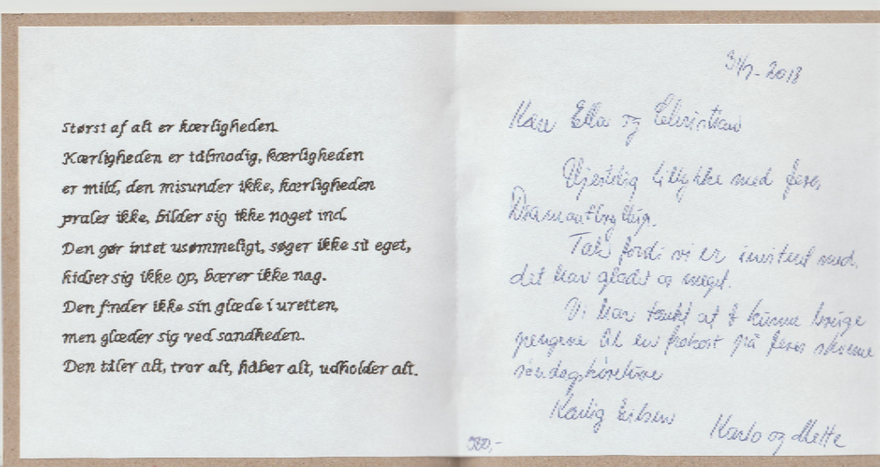 Størst af alt er kærligheden.
Kærligheden er tålmodig, kærligheden
er mild, den misunder ikke, kærligheden
praler ikke, bilder sig ikke noget ind.
Den gør intet usømmeligt, søger ikke sit eget,
hidser sig ikke op, bærer ikke nag.
Den finder ikke sin glæde i uretten,
men glæder sig ved sandheden.
Den tåler alt, tror alt, håber alt, udholder alt.
2018
Kære Ella og Christian
Hjertelig tillykke med jeres
Tak fordi vi er inviteret med,
det har glædet os meget.
Vi har tænkt at I kunne bruge
pengene til en frokost på jeres skønne
Kærlig hilsen
Karlo og Mette